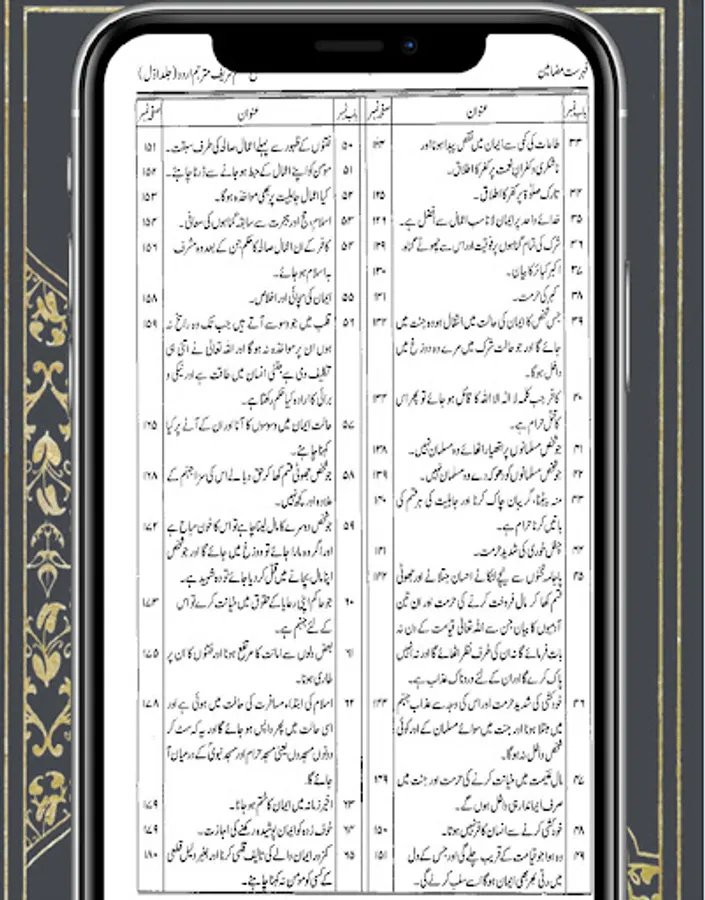 فہرست مضامین
سلم شریف مترجم اردو (جلد اوّل)
باب نمبر عنوان صفحہ نمبر
۳۳ طاعات کی کمی سے ایمان میں نقص پیدا ہونا اور ۱۲۳
ناشکری و کفرانِ نعمت پر کفر کا اطلاق۔
۳۴ تارک صلوٰۃ پر کفر کا اطلاق۔ ۱۲۵
۳۵ خدائے واحد پر ایمان لانا سب اعمال سے افضل ہے۔ ۱۲۶
۳۶ شرک کی تمام گناہوں پر فوقیت اور اس سے چھوٹے گناہ ۱۲۹
۳۷ اکبر کبائر کا بیان۔ ۱۳۰
۳۸ کبر کی حرمت۔ ۱۳۱
۳۹ جس شخص کا ایمان کی حالت میں انتقال ہو وہ جنت میں ۱۳۲
جائے گا اور جو حالت شرک میں مرے وہ دوزخ میں
داخل ہوگا۔
۴۰ کافر جب کلمہ لا الہ الا اللہ کا قائل ہو جائے تو پھر اس ۱۳۳
کا قتل حرام ہے۔
۴۱ جو شخص مسلمانوں پر ہتھیار اٹھائے وہ مسلمان نہیں۔ ۱۳۸
۴۲ جو شخص مسلمانوں کو دھوکہ دے وہ مسلمان نہیں۔ ۱۳۹
۴۳ منہ پیٹنا، گریبان چاک کرنا اور جاہلیت کی ہر قسم کی ۱۴۰
باتیں کرنا حرام ہے۔
۴۴ چغل خوری کی شدید حرمت۔ ۱۴۱
۴۵ پاجامہ ٹخنوں سے نیچے لٹکانے احسان جتلانے اور جھوٹی ۱۴۲
قسم کھا کر مال فروخت کرنے کی حرمت اور ان تین
آدمیوں کا بیان جن سے اللہ تعالیٰ قیامت کے دن نہ
بات فرمائے گا نہ ان کی طرف نظر اٹھائے گا اور نہ انہیں
پاک کرے گا اور ان کے لئے دردناک عذاب ہے۔
۴۶ خودکشی کی شدید حرمت اور اس کی وجہ سے عذاب جہنم ۱۴۴
میں مبتلا ہونا اور جنت میں سوائے مسلمان کے اور کوئی
شخص داخل نہ ہوگا۔
۴۷ مال غنیمت میں خیانت کرنے کی حرمت اور جنت میں ۱۴۹
صرف ایماندار ہی داخل ہوں گے۔
۴۸ خودکشی کرنے سے انسان کافر نہیں ہوتا۔ ۱۵۰
۴۹ وہ ہوا جو قیامت کے قریب چلے گی اور جس کے دل ۱۵۱
میں رتی بھر بھی ایمان ہوگا اسے سلب کرلے گی۔
باب نمبر عنوان صفحہ نمبر
۵۰ فتنوں کے ظہور سے پہلے اعمال صالحہ کی طرف سبقت۔ ۱۵۱
۵۱ مؤمن کو اپنے اعمال کے حبط ہو جانے سے ڈرنا چاہئے۔ ۱۵۲
۵۲ کیا اعمال جاہلیت پر بھی مواخذہ ہوگا۔ ۱۵۳
۵۳ اسلام، حج اور ہجرت سے سابقہ گناہوں کی معافی۔ ۱۵۴
۵۴ کافر کے ان اعمال صالحہ کا حکم جن کے بعد وہ مشرف ۱۵۶
بہ اسلام ہو جائے۔
۵۵ ایمان کی سچائی اور اخلاص۔ ۱۵۸
۵۶ قلب میں جو وسوسے آتے ہیں جب تک وہ راسخ نہ ۱۵۹
ہوں ان پر مواخذہ نہ ہوگا اور اللہ تعالیٰ نے اتنی ہی
تکلیف دی ہے جتنی انسان میں طاقت ہے اور نیکی و
برائی کا ارادہ کیا حکم رکھتا ہے۔
۵۷ حالت ایمان میں وسوسوں کا آنا اور ان کے آنے پر کیا ۱۶۵
کہنا چاہئے۔
۵۸ جو شخص جھوٹی قسم کھا کر حق دبا لے اس کی سزا جہنم کے ۱۶۸
علاوہ اور کچھ نہیں۔
۵۹ جو شخص دوسرے کا مال لینا چاہے تو اس کا خون مباح ہے ۱۷۲
اور اگر وہ مارا جائے تو دوزخ میں جائے گا اور جو شخص
اپنا مال بچانے میں قتل کر دیا جائے تو وہ شہید ہے۔
۶۰ جو حاکم اپنی رعایا کے حقوق میں خیانت کرے تو اس ۱۷۳
کے لئے جہنم ہے۔
۶۱ بعض دلوں سے امانت کا مرتفع ہونا اور فتنوں کا ان پر ۱۷۵
طاری ہونا۔
۶۲ اسلام کی ابتداء مسافرت کی حالت میں ہوئی ہے اور ۱۷۸
اسی حالت میں پھر واپس ہو جائے گا اور یہ کہ سمٹ کر
دونوں مسجدوں یعنی مسجد حرام اور مسجد نبویؐ کے درمیان آ
جائے گا۔
۶۳ اخیر زمانہ میں ایمان کا ختم ہو جانا۔ ۱۷۹
۶۴ خوف زدہ کو ایمان پوشیدہ رکھنے کی اجازت۔ ۱۷۹
۶۵ کمزور ایمان والے کی تالیف قلبی کرنا اور بغیر دلیل قطعی ۱۸۰
کے کسی کو مومن نہ کہنا چاہئے۔